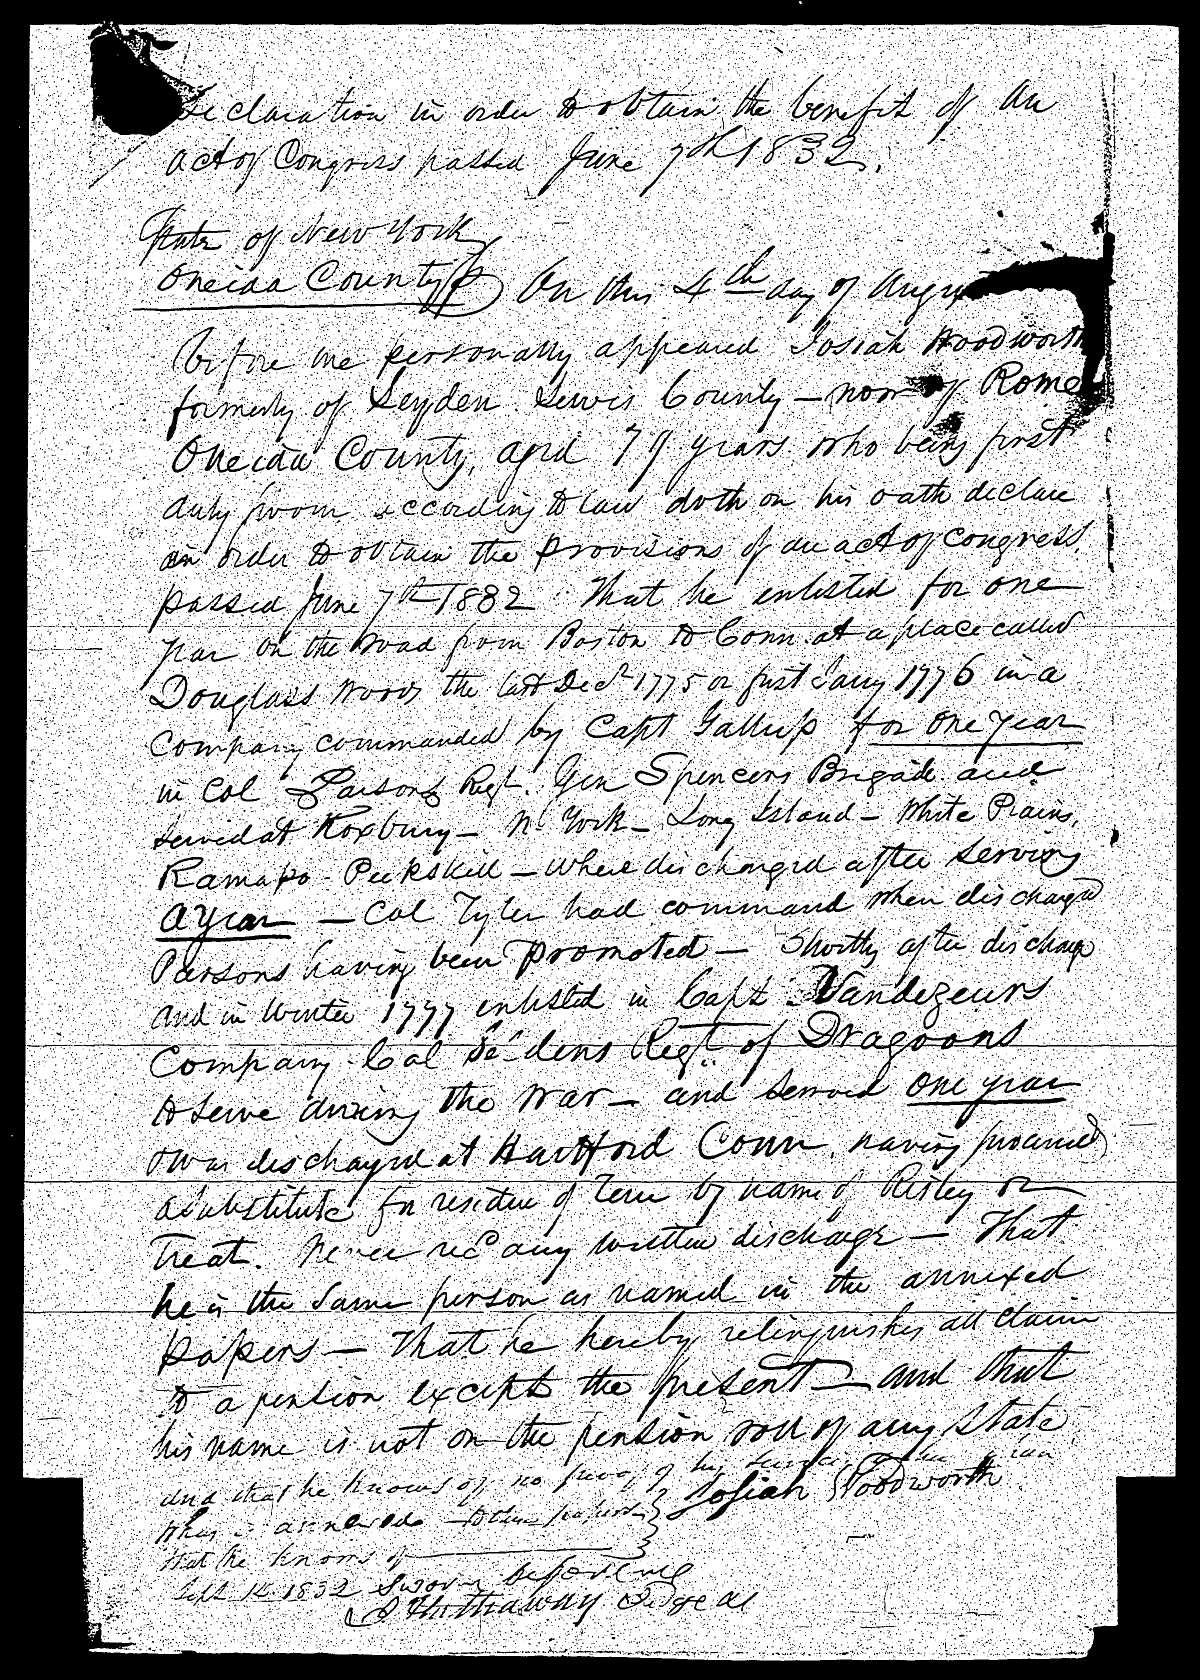 Declaration in order to obtain the benefit of an
act of Congress passed June 7th 1832.
State of New York
Oneida County On this 4th day of Augu
before me personally appeared Josiah Woodworth
formerly of Leyden Lewis County — now of Rome
Oneida County, aged years who being first
duly sworn according to law doth on his oath declare
in order to obtain the provisions of an act of Congress
passed June 7th 1832 That he enlisted for one
year on the road from Boston to Conn. at a place called
Douglass Woods the last Decr 1775 or first Jany 1776 in a
Company commanded by Capt Gallup for one year
in Col Parsons Regt. Gen Spencers Brigade and
served at Roxbury — N. York — Long Island — White Plains,
Ramapo - Peekskill — Where discharged after serving
a year — Col Tyler had command when discharged
Parsons having been promoted — Shortly after discharge
and in Winter 1777 enlisted in Capt Vandezeurs
Company - Col Regt. of Dragoons
to serve during the War — and served one year
& was discharged at Hartford Conn. having procured
a substitute for residue of Term by name of Risley or
Treat. Never recd any written discharge — That
he is the same person as named in the annexed
papers — That he hereby relinquishes all claim
to a pension except the present — and that
his name is not on the pension roll of any State
and that he knows of no proof of his service other than
what is annexed to these papers
Josiah Woodworth
that he knows of
Sept 1832 Sworn before me
Hathaway